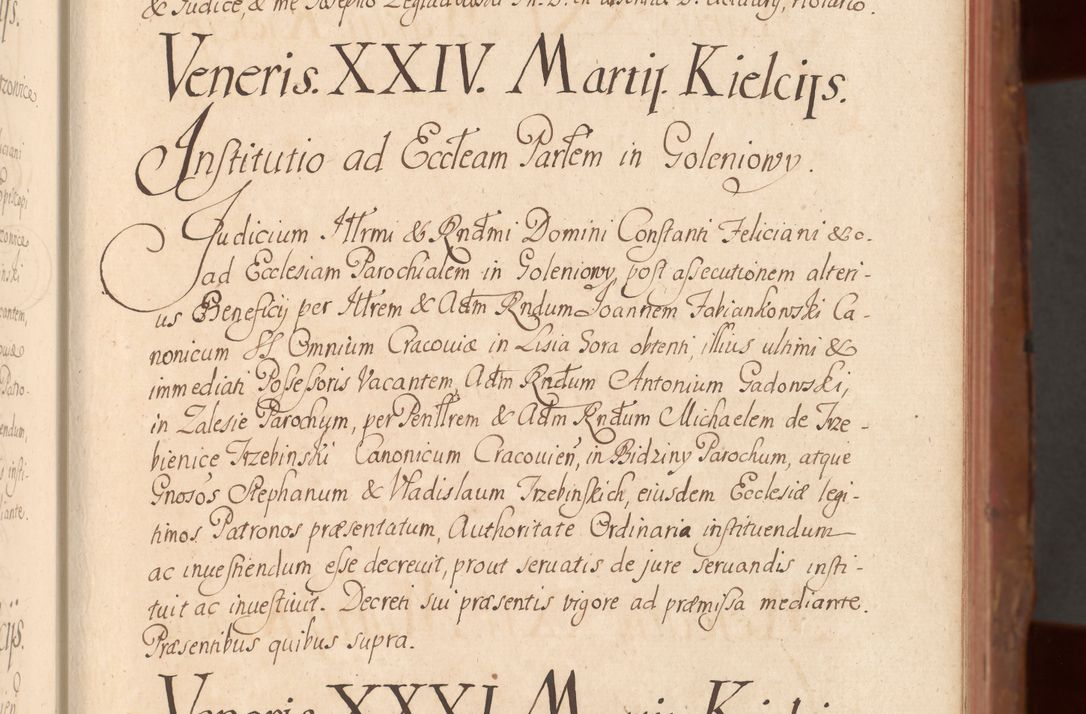 & Iudice, & me Josepho
Veneris. XXIV. Martij. Kielcijs.
Institutio ad Eccłeam Parłem in Goleniowy.
Judicium Iłłrmi & Rndmi Domini Constanti Feliciani &c.
ad Ecclesiam Parochialem in Goleniowy, post assecutionem alteri-
us Beneficij per Iłłrem & Adm Rndum Joannem Fabiankowski Ca-
nonicum SS Omnium Cracoviæ in Lisia Gora obtenti, illius ultimi &
immediati Possessoris Vacantem, Adm Rndum Antonium Gadowski,
in Zalesie Parochum, per Penłłrem & Adm Rndum Michaelem de Trze-
bienice Trzebinski Canonicum Cracovien, in Bidziny Parochum, atque
Gnosos Stephanum & Vladislaum Trzebinskich, eiusdem Ecclesiæ legi-
timos Patronos præsentatum, Authoritate Ordinaria instituendum
ac inuestiendum esse decreuit, prout seruatis de jure seruandis insti-
tuit ac inuestiuit. Decreti sui præsentis vigore ad præmissa mediante.
Præsentibus quibus supra.
Veneris XXXI. Martij Kielcijs